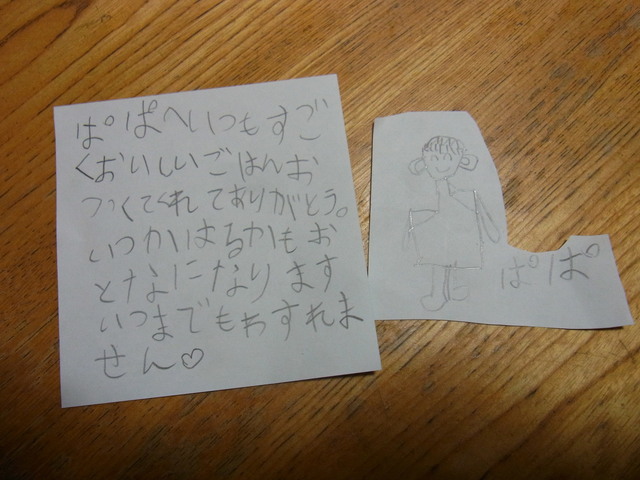 ぱぱへいつもすご
くおいしいごはんお
つくてくれてありがとう。
いつかはるかもお
となになります
いつまでもわすれま
せん♡
ぱぱ